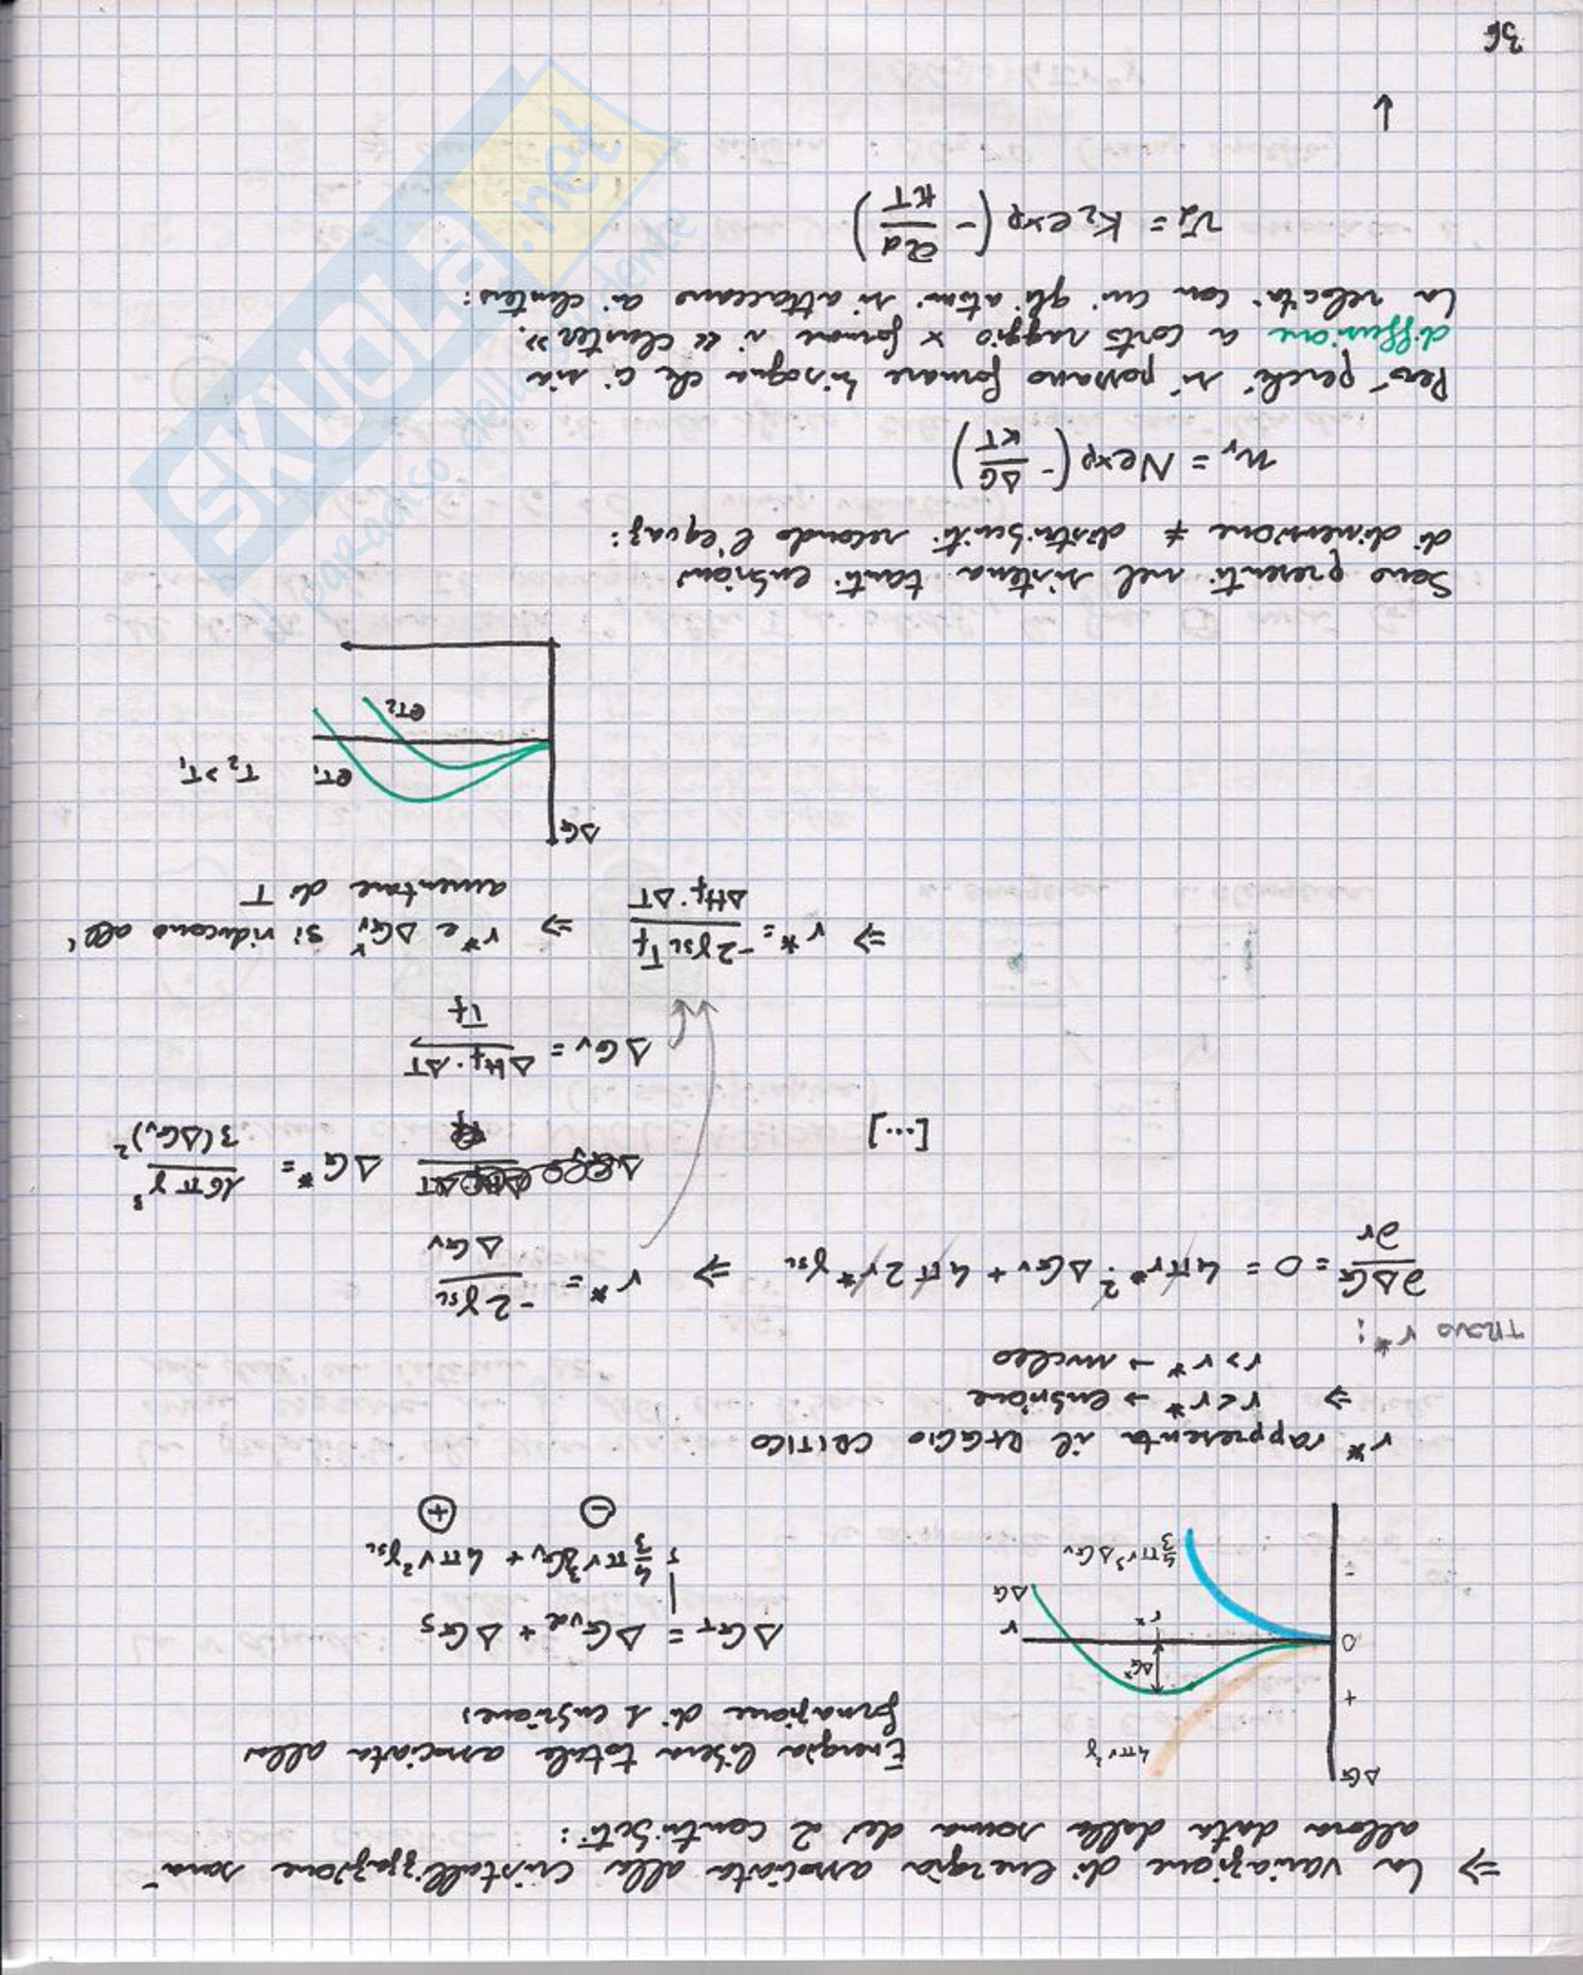 ⇒ La variazione di energia associata alla cristallizzazione sarà
allora data dalla somma dei 2 contributi:
ΔG
4πr²γ
+
ΔG*
0
r*
r
ΔG
-
4/3 πr³ΔGv
Energia libera totale associata alla
formazione di 1 embrione:
ΔG_T = ΔG_vol + ΔG_S
4/3 πr³ΔGv + 4πr²γ_SL
⊖ ⊕
r* rappresenta il RAGGIO CRITICO
⇒ r < r* → embrione
r > r* → nucleo
TROVO r*:
∂ΔG/∂r = 0 = 4πr*² · ΔGv + 4π2r*γ_SL ⇒ r* = -2γ_SL/ΔGv
ΔG* = 16πγ³/3(ΔGv)²
[...]
ΔGv = ΔHf·ΔT/Tf
⇒ r* = -2γ_SL Tf/ΔHf·ΔT ⇒ r* e ΔG_r si riducono all'
aumentare di T
ΔG
@T₁
T₂ > T₁
@T₂
Sono presenti nel sistema tanti embrioni
di dimensione ≠ distribuiti secondo l'equaz:
n_r = N exp(-ΔG/KT)
Però perché si possano formare bisogna che ci sia
diffusione a corto raggio x formare i «cluster».
La velocità con cui gli atomi si attaccano ai clusters:
v_d = K₂ exp(-Qd/KT)
↓
36
SKUOLA.net
il paradiso dello studente